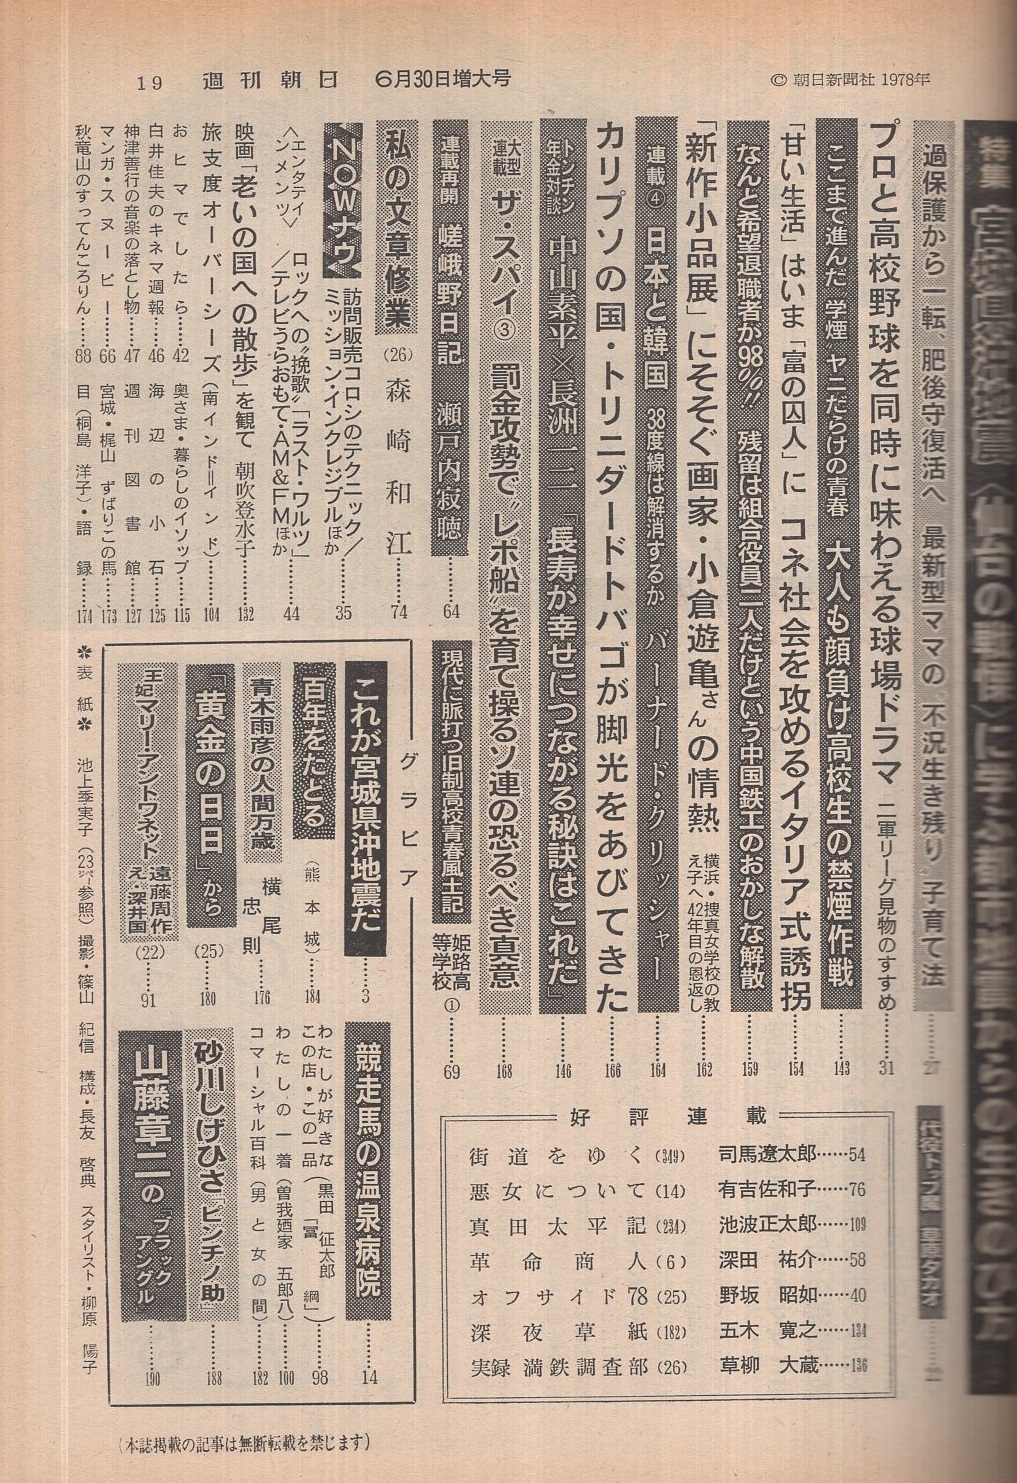 19 週刊朝日 6月30日増大号
© 朝日新聞社 1978年
特集 宮城県沖地震〈仙台の戦慄〉に学ぶ都市地震からの生きのび方
過保護から一転、肥後守復活へ 最新型ママの〝不況生き残り〟子育て法……27
プロと高校野球を同時に味わえる球場ドラマ 二軍リーグ見物のすすめ……31
ここまで進んだ〝学煙〟ヤニだらけの青春 大人も顔負け高校生の禁煙作戦……143
「甘い生活」はいま「富の囚人」に コネ社会を攻めるイタリア式誘拐……154
なんと希望退職者が98%!! 残留は組合役員二人だけという中国鉄工のおかしな解散……159
「新作小品展」にそそぐ画家・小倉遊亀さんの情熱 横浜・捜真女学校の教え子へ42年目の恩返し……162
連載④ 日本と韓国 38度線は解消するか バーナード・クリッシャー……164
カリプソの国・トリニダードトバゴが脚光をあびてきた……166
トンチン年金対談 中山素平×長洲一二「長寿が幸せにつながる秘訣はこれだ」……146
大型連載 ザ・スパイ③ 罰金攻勢で〝レポ船〟を育て操るソ連の恐るべき真意……168
連載再開 嵯峨野日記 瀬戸内寂聴……64
現代に脈打つ旧制高校青春風土記 姫路高等学校①……69
私の文章修業(26) 森崎和江……74
NOWナウ 訪問販売コロシのテクニック/ミッション・インクレジブルほか……35
〈エンタテインメンツ〉 ロックへの〝挽歌〟「ラスト・ワルツ」/テレビうらおもて・AM&FMほか……44
映画「老いの国への散歩」を観て 朝吹登水子……132
旅支度オーバーシーズ(南インド=インド)……104
おヒマでしたら……42
奥さま・暮らしのイソップ……115
白井佳夫のキネマ週報……46
海辺の小石……125
神津善行の音楽の落とし物……47
週刊図書館……127
マンガ・スヌーピー……66
宮城・梶山 ずばりこの馬……173
秋竜山のすってんころりん……88
目(桐島 洋子)・語録……174
代役トップ屋 草原タカオ……22
好評連載
街道をゆく(349) 司馬遼太郎……54
悪女について(14) 有吉佐和子……76
真田太平記(234) 池波正太郎……109
革命商人(6) 深田 祐介……58
オフサイド78(25) 野坂 昭如……40
深夜草紙(182) 五木 寛之……134
実録 満鉄調査部(26) 草柳 大蔵……136
グラビア
これが宮城県沖地震だ……3
競走馬の温泉病院……14
百年をたどる(熊本城)……184
わたしが好きなこの店・この一品(黒田 征太郎「冨綱」)……98
わたしの一着(曽我廼家 五郎八)……100
青木雨彦の人間万歳 横尾忠則……176
コマーシャル百科(男と女の間)……182
「黄金の日日」から(25)……180
砂川しげひさ「ピンチノ助」……188
王妃マリー・アントワネット 遠藤周作 え・深井国(22)……91
山藤章二の「ブラックアングル」……190
✽表紙✽ 池上季実子(23ページ参照) 撮影・篠山 紀信 構成・長友 啓典 スタイリスト・柳原 陽子
(本誌掲載の記事は無断転載を禁じます)